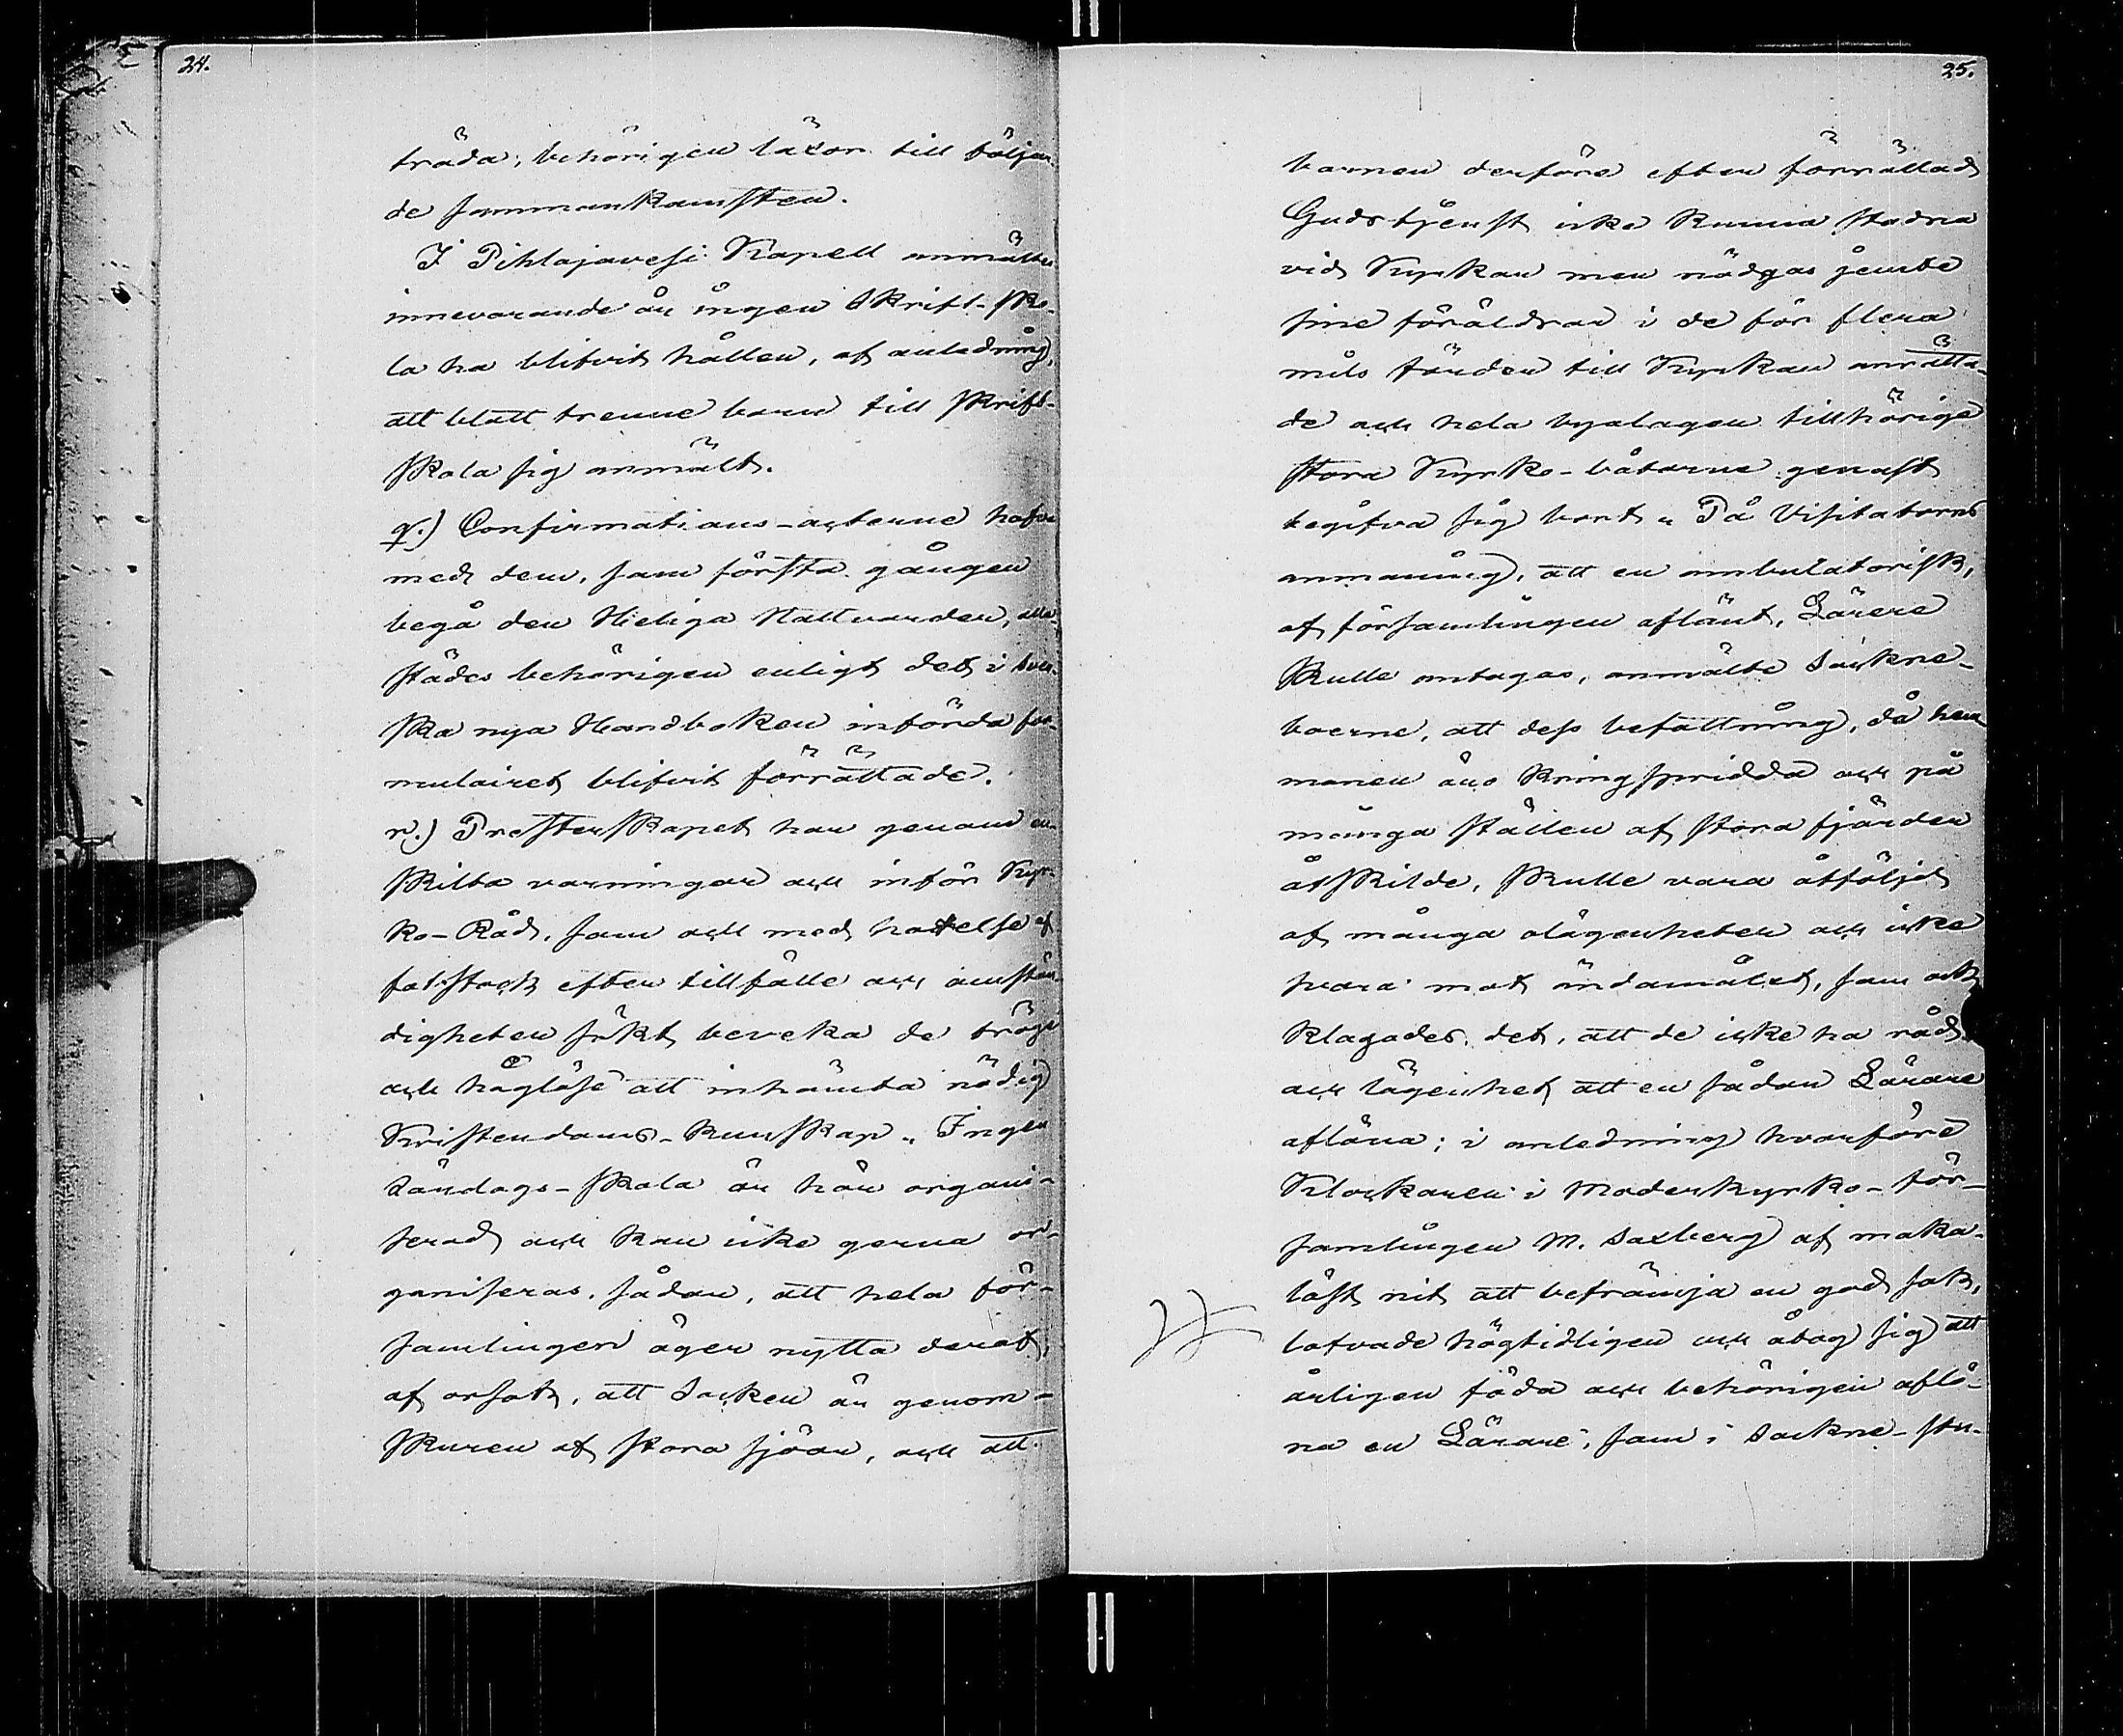 24.
träda, behörigen läxor till följan-
de sammankomsten.
I Pihlajavesi Kapell anmältes
innevarande år ingen Skrift-sko-
la ha blifvit hållen, af anledning,
att blott trenne barn till skrift-
skola sig anmält.
q.) Confirmations-acterne hafva
med dem, som första gången
begå den Heliga Nattvarden, alle-
städes behörigen enligt det i Sven-
ska nya Handboken införda for-
mulairet blifvit förrättade.
r.) Presterskapet har genom en-
skilta varningar och inför Kyr-
ko-Råd, som och med hotelse af
fotstock efter tillfälle och omstän-
digheter sökt beveka de tröge
och håglöse att inhämta nödig
Kristendoms-kunskap. Ingen
Söndags-skola är här organi-
serad och kan icke gerna or-
ganiseras, sådan, att hela för-
samlingen äger nytta deraf,
af orsak, att Socken är genom-
skuren af stora sjöar, och att
25.
barnen derföre efter förrättad
Gudstjenst icke kunna stadna
vid Kyrkan men nödgas jemte
sine föräldrar i de för flera
mils färder till Kyrkan inrätta-
de och hela byalagen tillhörige
stora Kyrko-båtarne genast
begifva sig bort. På Visitators
anmaning, att en ambulatorisk,
af församlingen aflönt, Lärare
skulle antagas, anmälte Sockne-
boerne, att dess befattning, då hem-
manen äro kringspridda och på
många ställen af stora fjärdar
åtskilde, skulle vara åtföljd
af många olägenheter och icke
svara mot ändamålet, som ock
klagades det, att de icke ha råd
och lägenhet att en sådan Lärare
aflöna; i anledning hvarföre
Klockaren i Moderkyrko-för-
samlingen M. Saxberg af maka-
löst nit att befrämja en god sak,
lofvade högtidligen och åtog sig att
årligen föda och behörigen aflö-
na en Lärare, som i Sockne-stu-